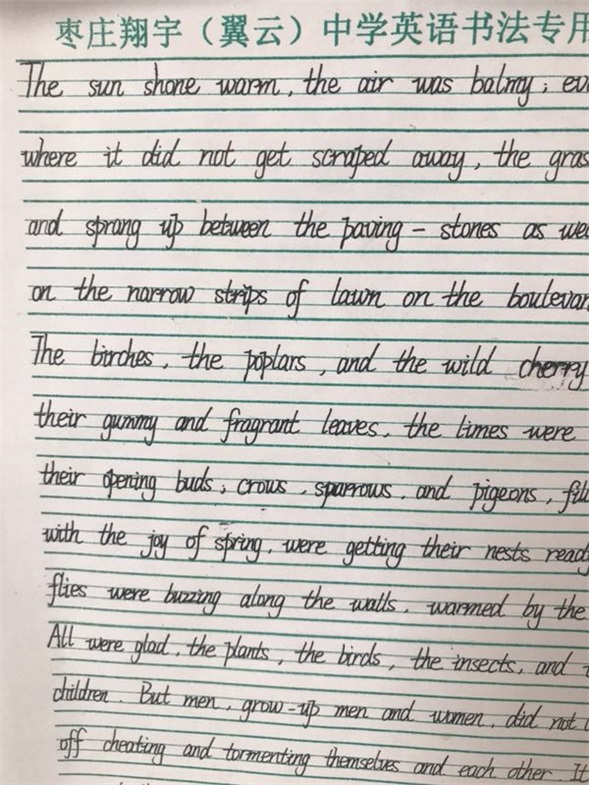 枣庄翔宇（翼云）中学英语书法专用
The sun shone warm, the air was balmy;
where it did not get scraped away, the
and sprang up between the paving - stones as
on the narrow strips of lawn on the
The birches, the poplars, and the wild cherry
their gummy and fragrant leaves, the limes were
their opening buds; crows, sparrows, and pigeons,
with the joy of spring, were getting their nests
flies were buzzing along the walls, warmed by the
All were glad, the plants, the birds, the insects, and
children. But men, grow-up men and women, did not
off cheating and tormenting themselves and each other. It